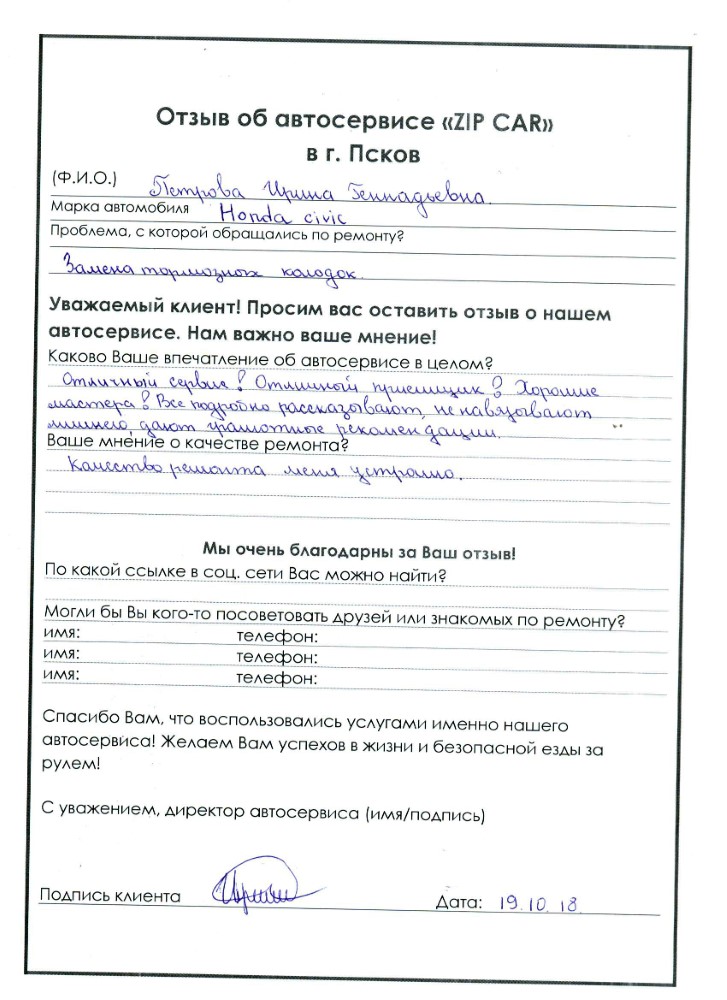 Отзыв об автосервисе «ZIP CAR»
в г. Псков
(Ф.И.О.) Петрова Ирина Геннадьевна.
Марка автомобиля Honda civic
Проблема, с которой обращались по ремонту?
Замена тормозных колодок.
Уважаемый клиент! Просим вас оставить отзыв о нашем
автосервисе. Нам важно ваше мнение!
Каково Ваше впечатление об автосервисе в целом?
Отличный сервис! Отличный приемщик! Хорошие
мастера! Все подробно рассказывают, не навязывают
лишнего, дают грамотные рекомендации.
Ваше мнение о качестве ремонта?
Качество ремонта меня устроило.
Мы очень благодарны за Ваш отзыв!
По какой ссылке в соц. сети Вас можно найти?
Могли бы Вы кого-то посоветовать друзей или знакомых по ремонту?
имя: телефон:
имя: телефон:
имя: телефон:
Спасибо Вам, что воспользовались услугами именно нашего
автосервиса! Желаем Вам успехов в жизни и безопасной езды за
рулем!
С уважением, директор автосервиса (имя/подпись)
Подпись клиента Дата: 19.10.18.